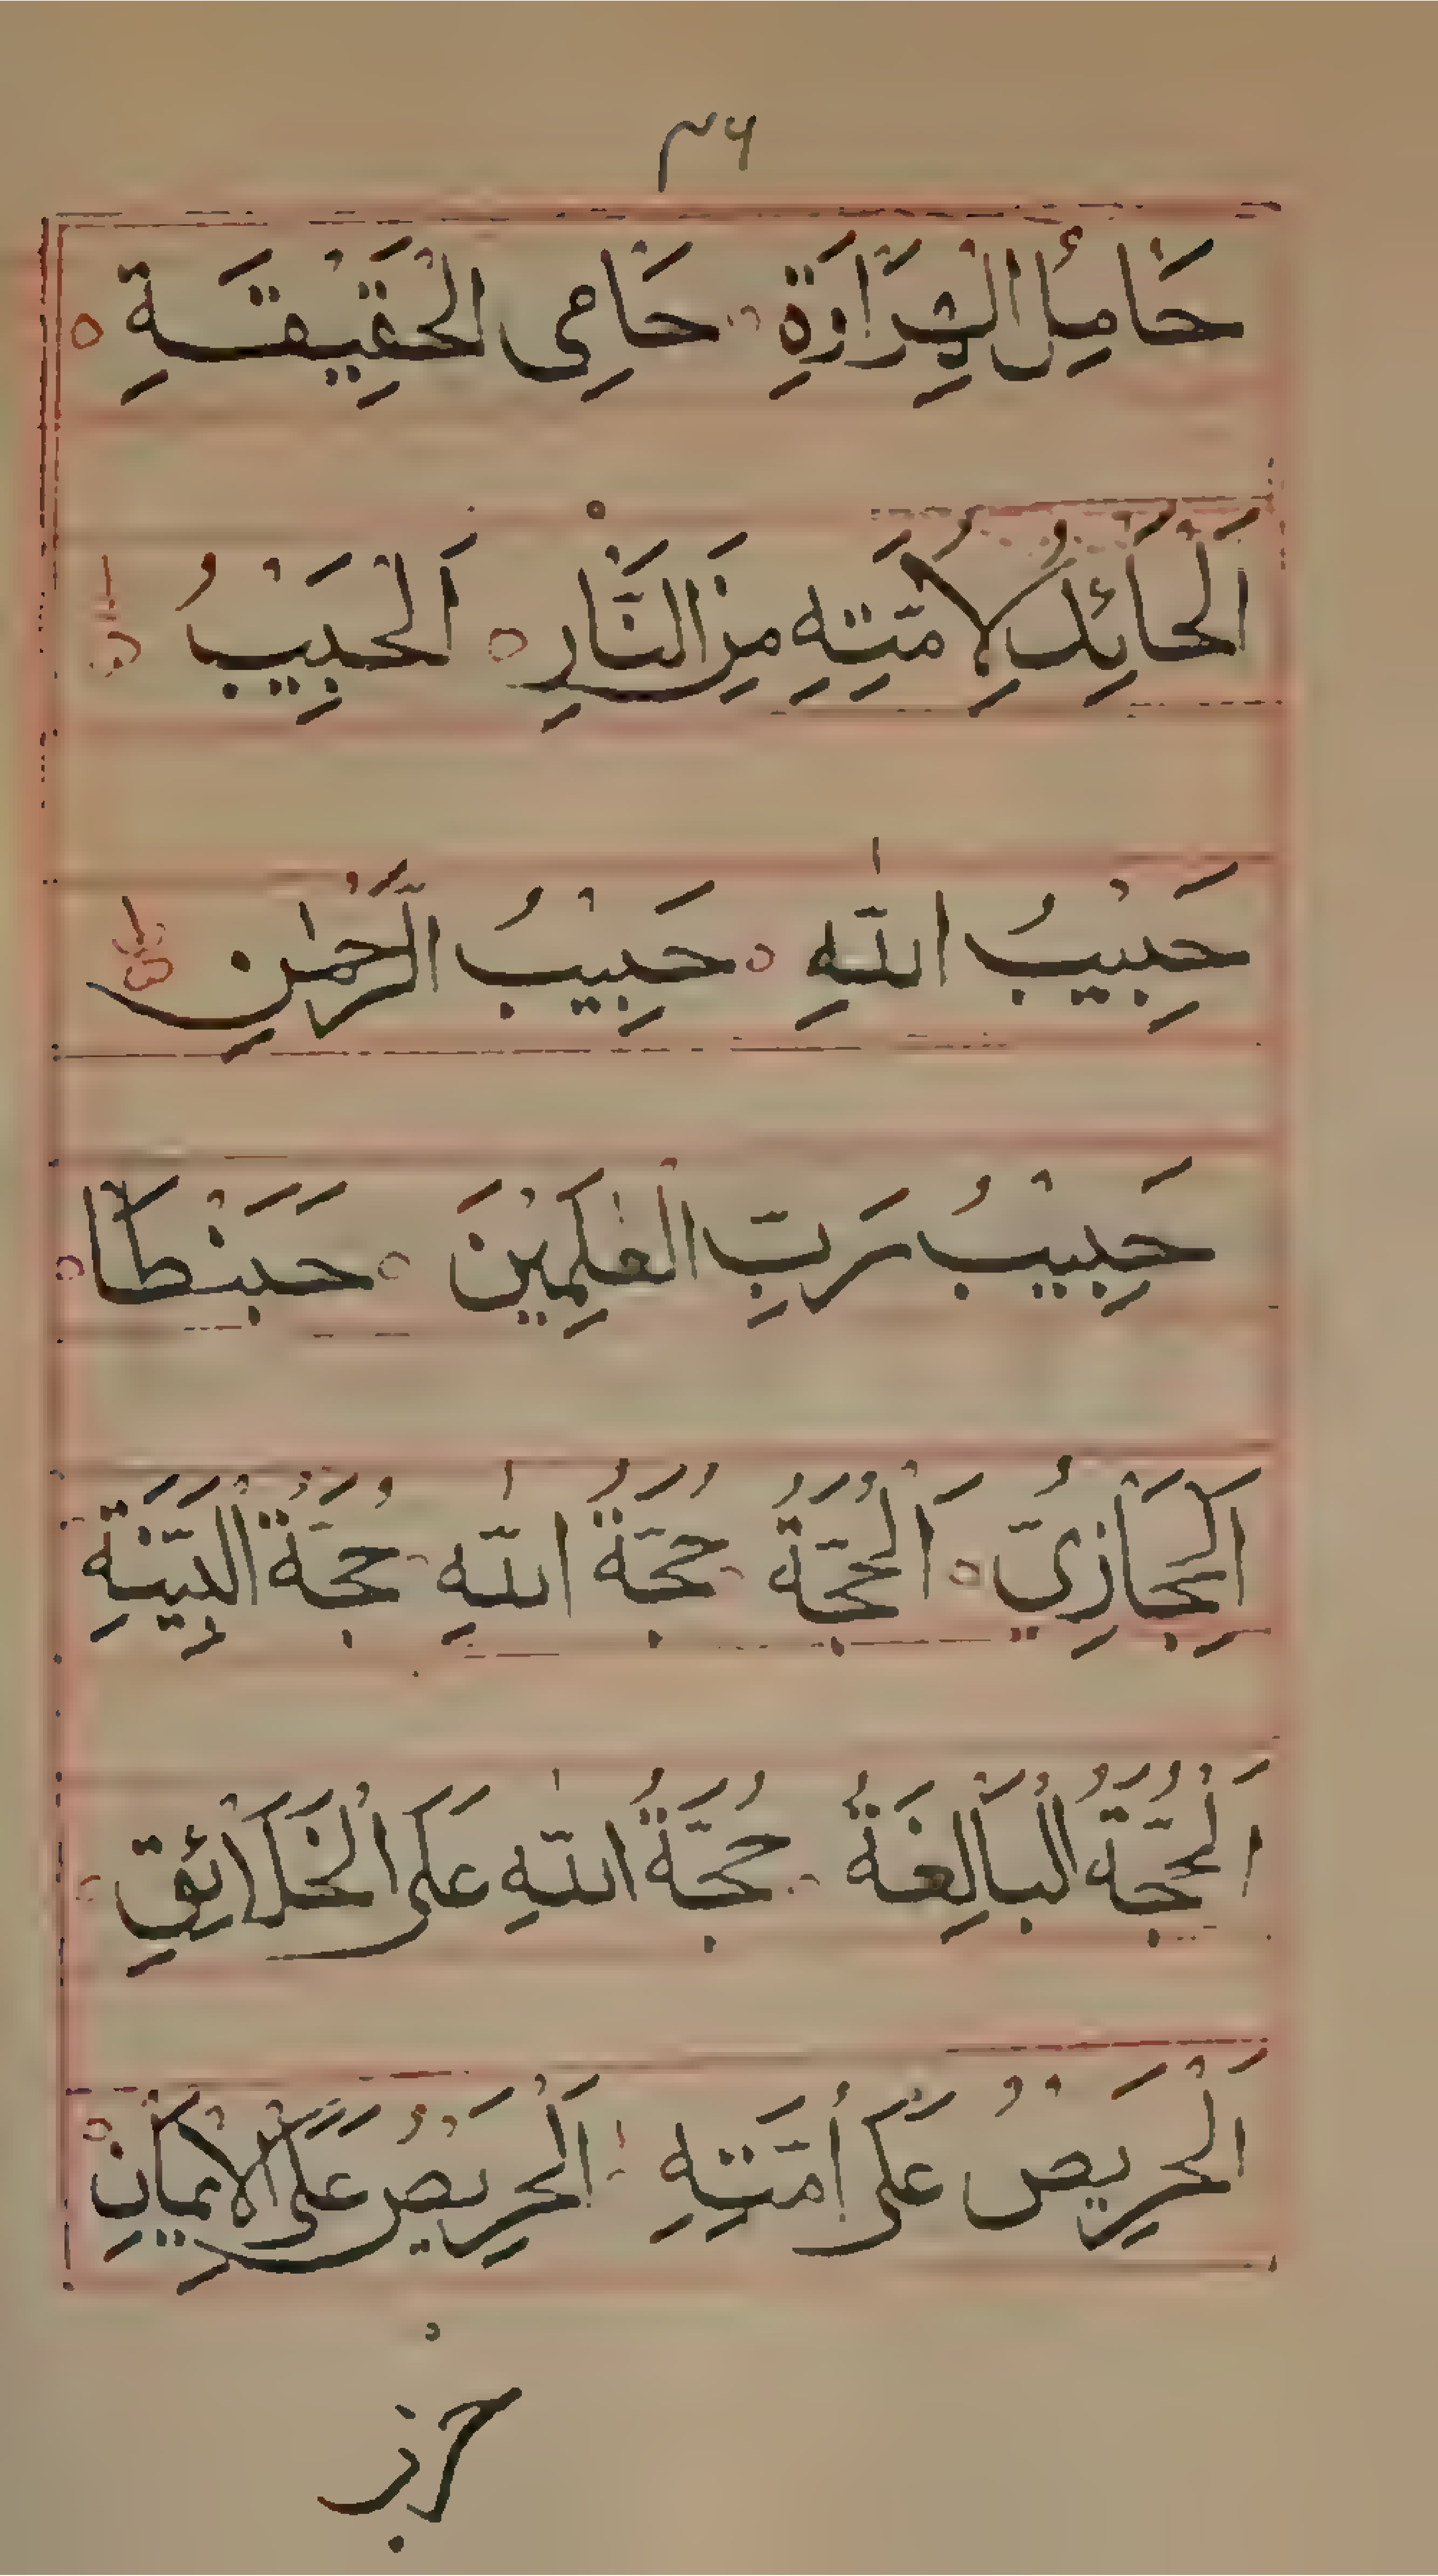 ٣٦
حَامِلُ الْهِرَاوَةِ ه حَامِى الْحَقِيْقَةِ ه
اَلْحَائِدُ لِاُمَّتِهٖ مِنَ النَّارِ ه اَلْحَبِيْبُ
حَبِيْبُ اللّٰهِ ه حَبِيْبُ الرَّحْمٰنِ
حَبِيْبُ رَبِّ الْعٰلَمِيْنَ ه حَبَنْطَا ه
اَلْحِجَازِيُّ ه اَلْحُجَّةُ حُجَّةُ اللّٰهِ حُجَّةُ الْبَيِّنَةِ
اَلْحُجَّةُ الْبَالِغَةُ حُجَّةُ اللّٰهِ عَلَى الْخَلَائِقِ
اَلْحَرِيْصُ عَلَى اُمَّتِهِ اَلْحَرِيْصُ عَلَى الْاِيْمَانِ ه
حرز